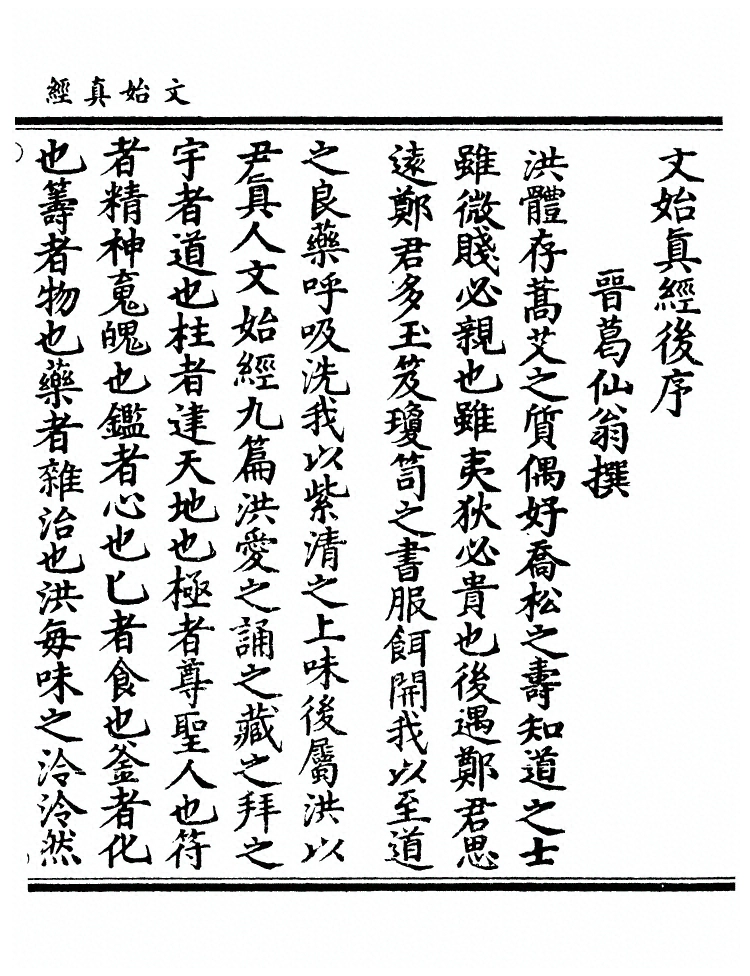 文始真經
文始眞經後序
晉葛仙翁撰
洪體存蒿艾之質偶好喬松之壽知道之士
雖微賤必親也雖夷狄必貴也後遇鄭君思
遠鄭君多玉笈瓊笥之書服餌開我以至道
之良藥呼吸洗我以紫清之上味後屬洪以
尹眞人文始經九篇洪愛之誦之藏之拜之
宇者道也柱者建天地也極者尊聖人也符
者精神䰟魄也鑑者心也匕者食也釜者化
也籌者物也藥者雜治也洪每味之泠泠然